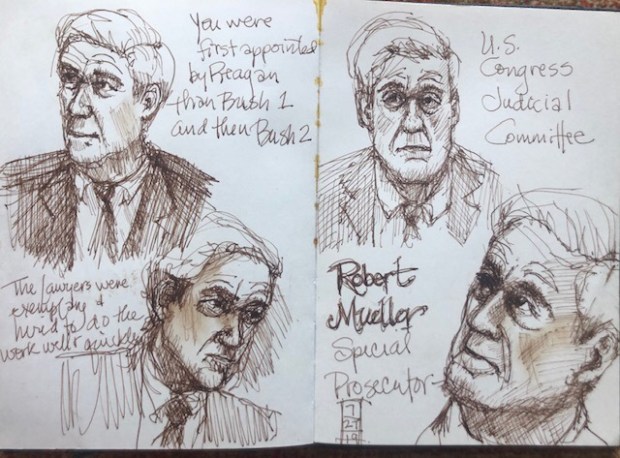 You were
first appointed
by Reagan
than Bush 1
and then Bush 2
The lawyers were
exemplary &
hired to do the
work well & quickly
U.S.
Congress
Judicial
Committee
Robert
Mueller
Special
Prosecutor